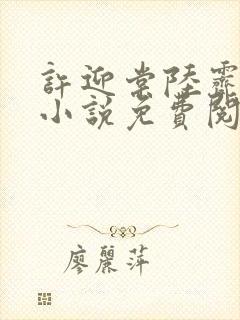 許迎常陸霽
小說免費閱
廖麗萍